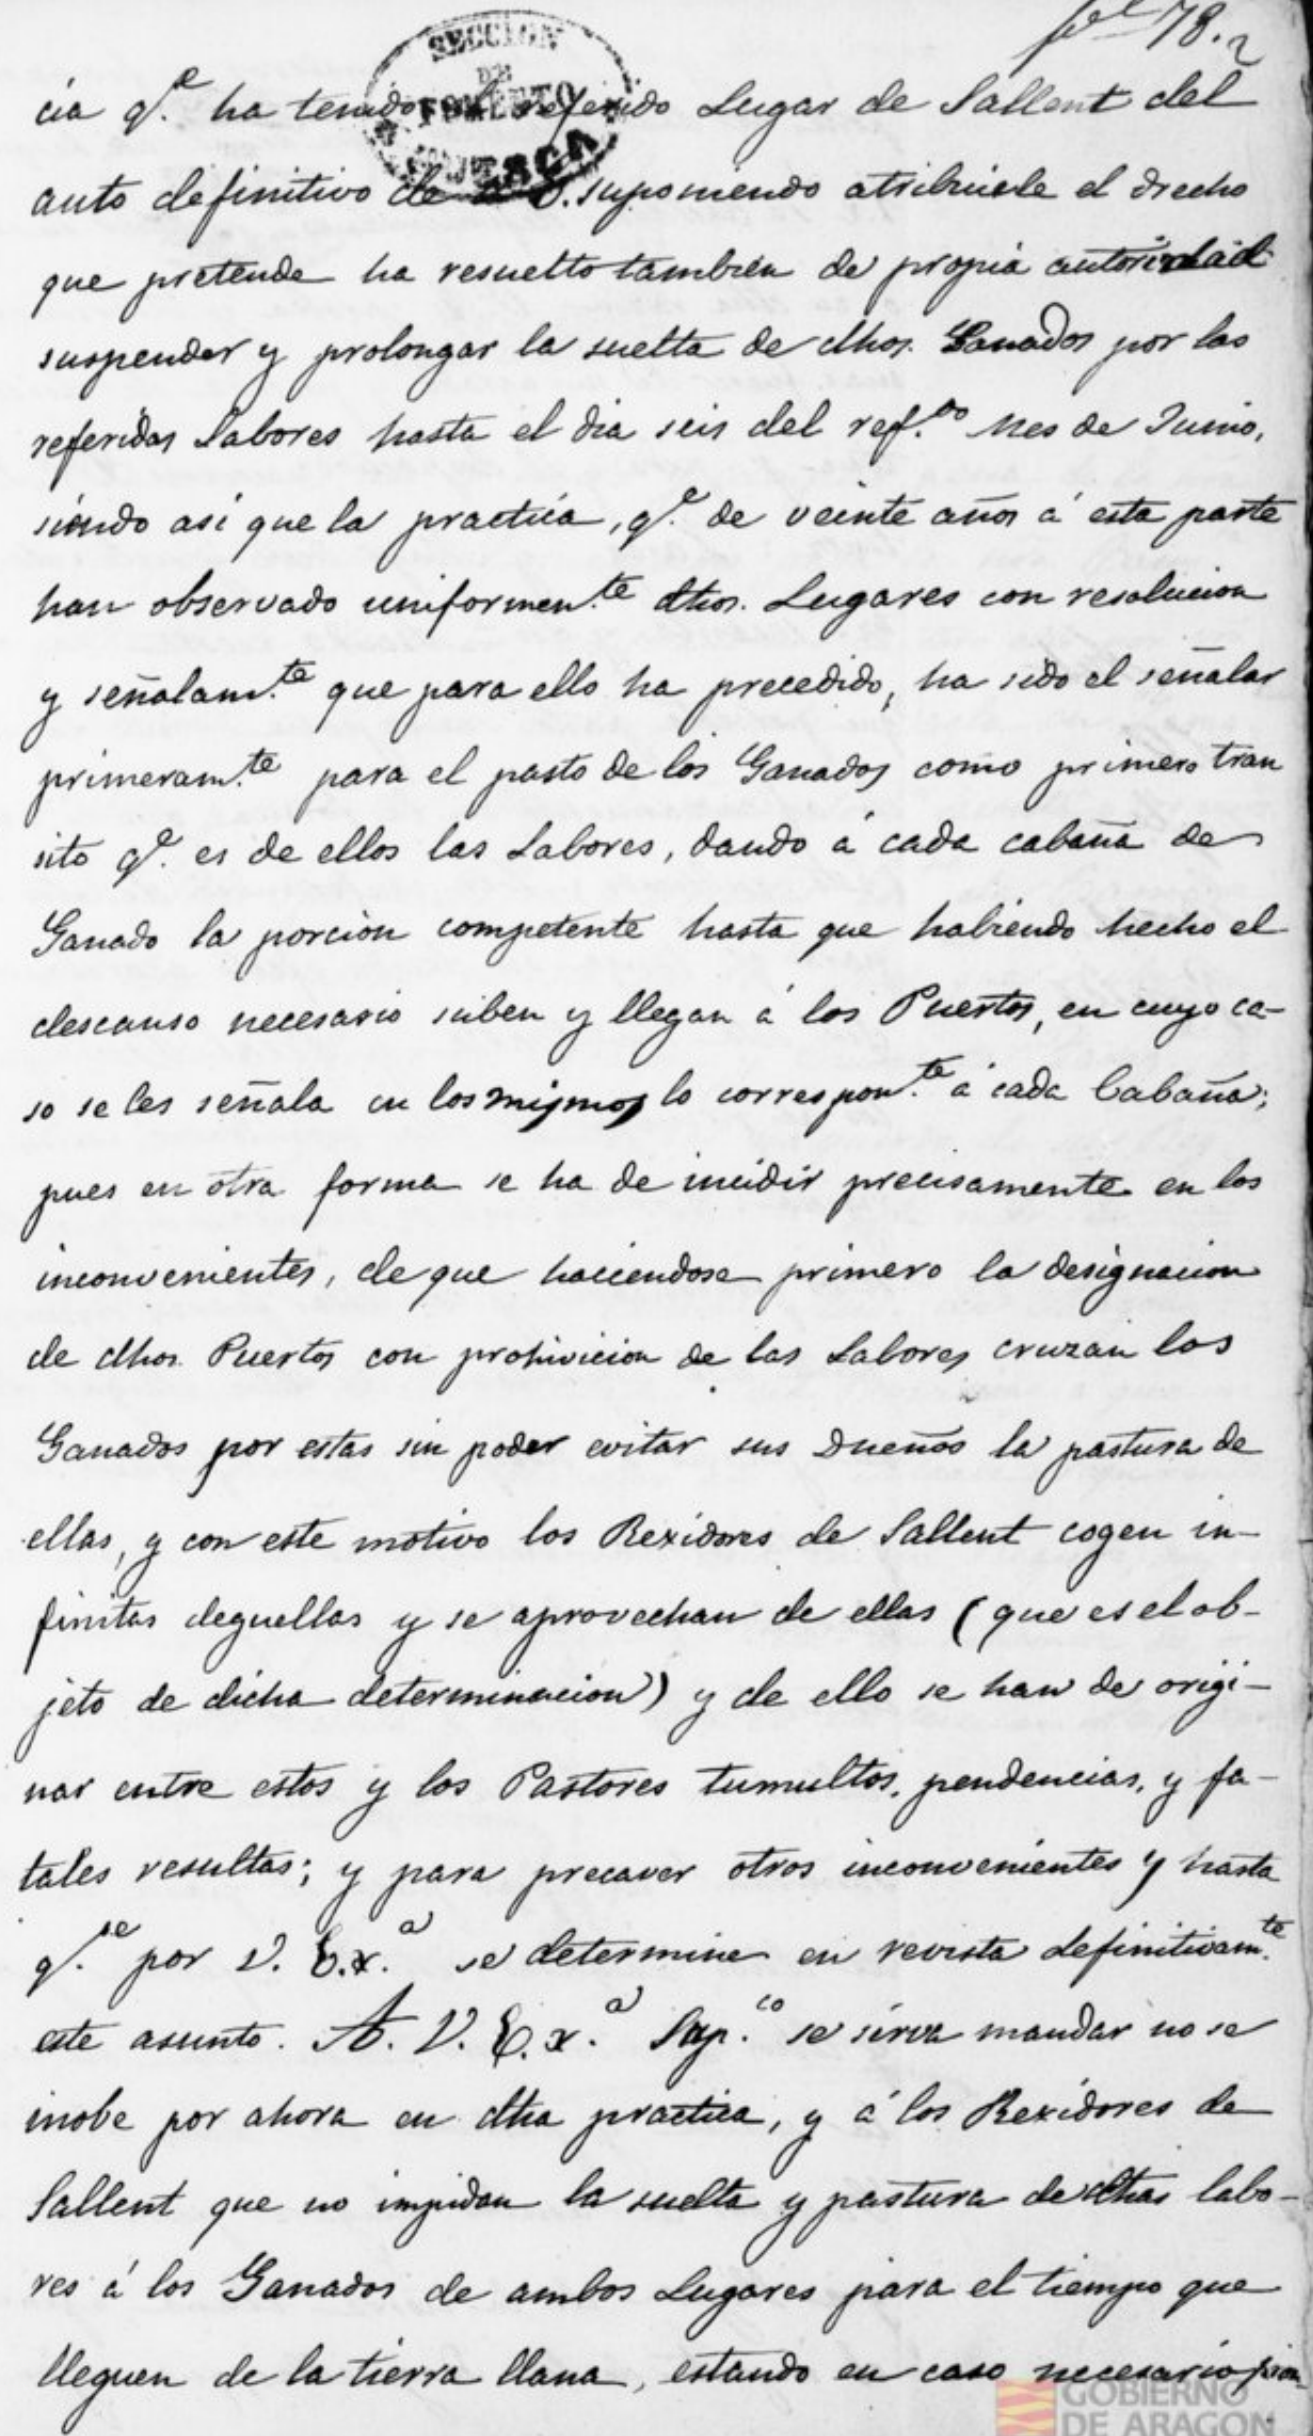 fol 78. 2
SECCION
DE
FOMENTO
HUESCA
cia q.e ha tenido el referido Lugar de Sallent del
auto definitivo de suponiendo atribuirle el drecho
que pretende ha resuelto tambien de propia autoridad
suspender y prolongar la suelta de dhos. Ganados por las
referidas Labores hasta el dia seis del ref.do Mes de Junio,
siendo asi que la practica, q.e de veinte años á esta parte
han observado uniformen.te dhos. Lugares con resolucion
y señalam.te que para ello ha precedido, ha sido el señalar
primeram.te para el pasto de los Ganados como primero tran
sito q.e es de ellos las Labores, dando á cada cabaña de
Ganado la porcion competente hasta que habiendo hecho el
descanso necesario suben y llegan á los Puertos, en cuyo ca-
so se les señala en los mismos lo correspon.te á cada Cabaña;
pues en otra forma se ha de incidir precisamente en los
inconvenientes, de que haciendose primero la designacion
de dhos. Puertos con prohivicion de las Labores cruzan los
Ganados por estas sin poder evitar sus Dueños la pastura de
ellas, y con este motivo los Rexidores de Sallent cogen in-
finitas deguellas y se aprovechan de ellas (que es el ob-
jeto de dicha determinacion) y de ello se han de origi-
nar entre estos y los Pastores tumultos, pendencias, y fa-
tales resultas; y para precaver otros inconvenientes y hasta
q.e por V. Ex.a se determine en revista definitivam.te
este asunto. A. V. Ex.a Sup.co se sirva mandar no se
inobe por ahora en dha practica, y á los Rexidores de
Sallent que no impidan la suelta y pastura de dhas labo-
res á los Ganados de ambos Lugares para el tiempo que
lleguen de la tierra llana, estando en caso necesario
GOBIERNO
DE ARAGON